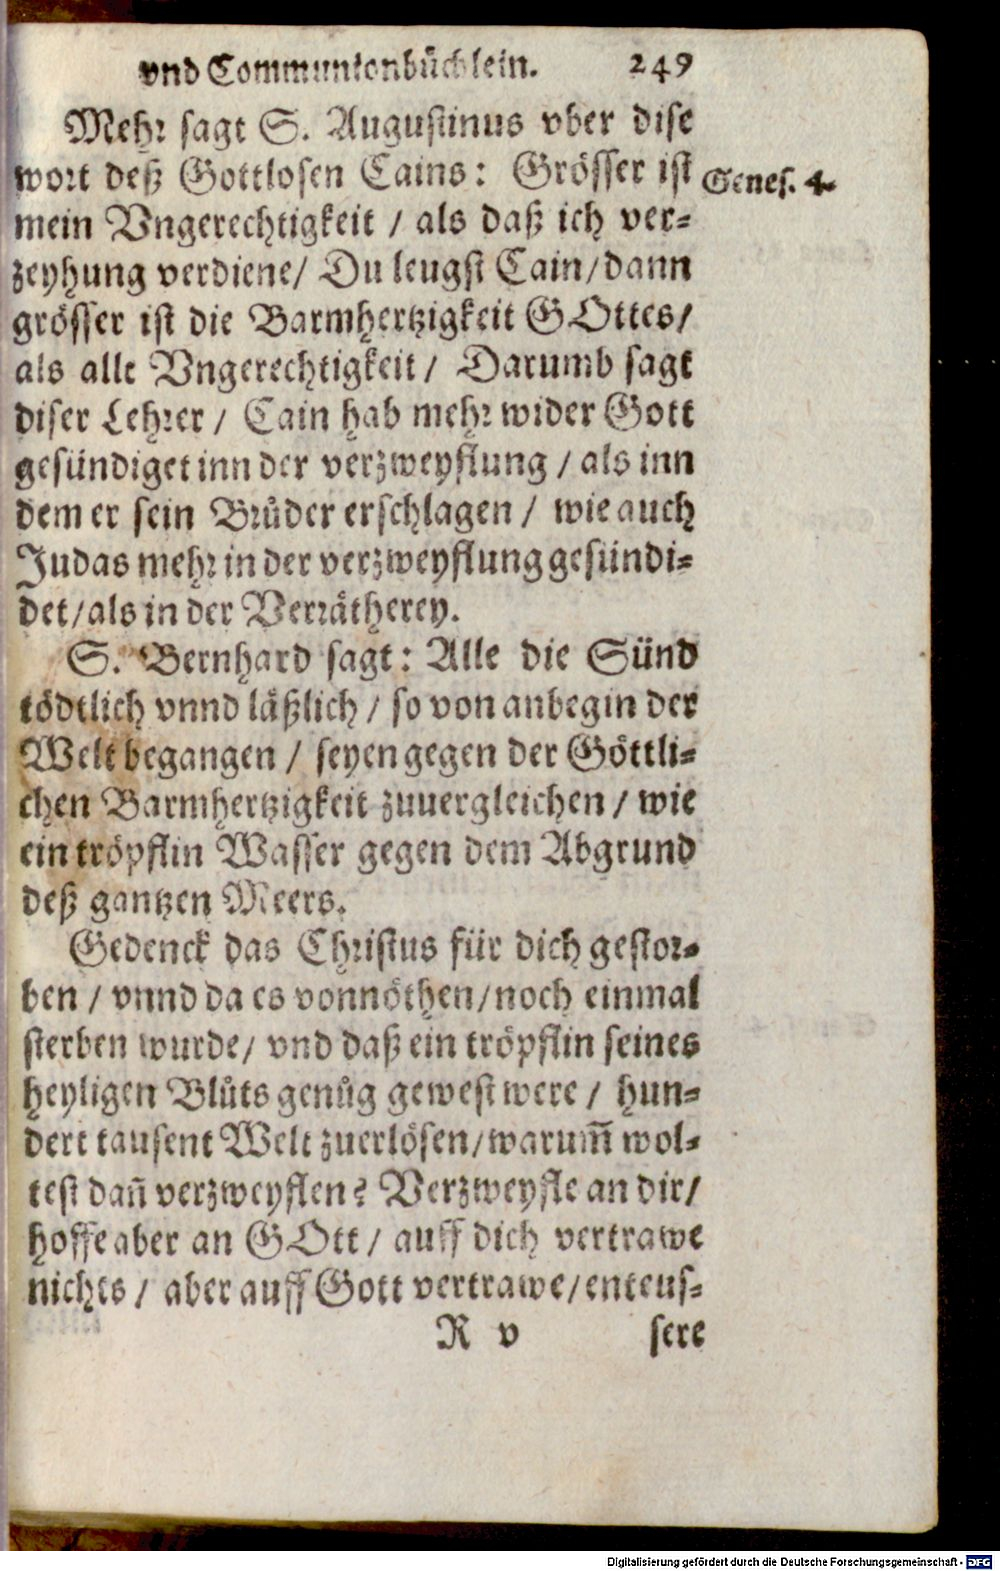 vnd Communionbüchlein. 249
Mehr sagt S. Augustinus vber dise
wort deß Gottlosen Cains: Grösser ist
Genes. 4.
mein Vngerechtigkeit / als daß ich ver-
zeyhung verdiene/ Du leugst Cain/dann
grösser ist die Barmhertzigkeit GOttes/
als alle Vngerechtigkeit / Darumb sagt
diser Lehrer / Cain hab mehr wider Gott
gesündiget inn der verzweyflung / als inn
dem er sein Brůder erschlagen / wie auch
Judas mehr in der verzweyflung gesündi-
det/als in der Verrätherey.
S. Bernhard sagt: Alle die Sünd
tödtlich vnnd läßlich / so von anbegin der
Welt begangen / seyen gegen der Göttli-
chen Barmhertzigkeit zuuergleichen / wie
ein tröpflin Wasser gegen dem Abgrund
deß gantzen Meers.
Gedenck das Christus für dich gestor-
ben / vnnd da es vonnöthen/noch einmal
sterben wurde/ vnd daß ein tröpflin seines
heyligen Blůts genůg gewest were / hun-
dert tausent Welt zuerlösen/warum̃ wol-
test dañ verzweyflen? Verzweyfle an dir/
hoffe aber an GOtt / auff dich vertrawe
nichts / aber auff Gott vertrawe/enteus-
R v sere
Digitalisierung gefördert durch die Deutsche Forschungsgemeinschaft - DFG